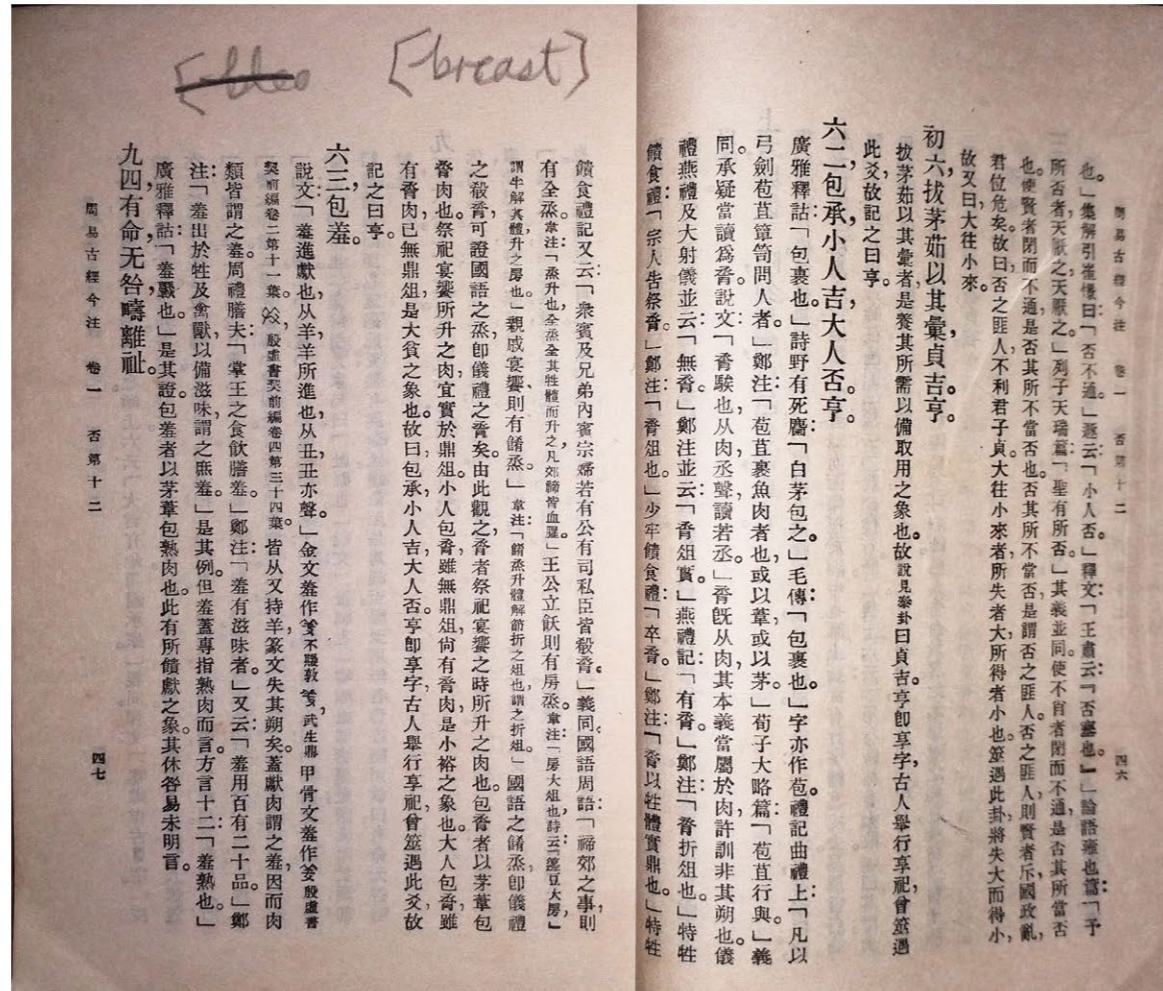 周易古經今注　卷一　否第十二　四六
也。」集解引崔憬曰：「否不通。」逐云：「小人否。」釋文：「王肅云：『否塞也。』」論語雍也篇：「予
所否者，天厭之天厭之。」列子天瑞篇：「聖有所否。」其義並同。使不肖者閉而不通，是否其所當否
也。使賢者閉而不通，是否其所不當否也。否其所不當否，是謂否之匪人。否之匪人，則賢者斥，國政亂，
君位危矣。故曰否之匪人，不利君子貞。大往小來者，所失者大，所得者小也。筮遇此卦，將失大而得小，
故又曰大往小來。
初六，拔茅茹以其彙，貞吉，亨。
拔茅茹以其彙者，是養其所需以備取用之象也。故說見泰卦曰貞吉。亨卽享字，古人舉行享祀，曾筮遇
此爻，故記之曰亨。
六二，包承，小人吉，大人否，亨。
廣雅釋詁：「包裹也。」詩野有死麕：「白茅包之。」毛傳：「包裹也。」字亦作苞。禮記曲禮上：「凡以
弓劍苞苴簞笥問人者。」鄭注：「苞苴裹魚肉者也，或以葦，或以茅。」荀子大略篇：「苞苴行與。」義
同。承疑當讀爲脀，說文：「脀騃也，从肉丞聲，讀若丞。」脀旣从肉，其本義當屬於肉，許訓非其朔也。儀
禮燕禮及大射儀並云：「無脀。」鄭注並云：「脀俎實。」燕禮記：「有脀。」鄭注：「脀折俎也。」特牲
饋食禮：「宗人告祭脀。」鄭注：「脀俎也。」少牢饋食禮：「卒脀。」鄭注：「脀以牲體實鼎也。」特牲
[-breast]
饋食禮記又云：「衆賓及兄弟內賓宗婦若有公有司私臣皆殽脀。」義同。國語周語：「禘郊之事，則
有全烝。韋注：「烝升也，全烝全其牲體而升之，凡郊禘皆血腥。」王公立飫，則有房烝。韋注：「房大俎也，詩云：『籩豆大房。』
謂半解其體升之房也。」親戚宴饗，則有餚烝。」韋注：「餚烝升體解節折之俎也，謂之折俎。」國語之餚烝，卽儀禮
之殽脀，可證國語之烝卽儀禮之脀矣。由此觀之，脀者祭祀宴饗之時所升之肉也。包脀者以茅葦包
脀肉也。祭祀宴饗所升之肉，宜實於鼎俎。小人包脀，雖無鼎俎，尙有脀肉，是小裕之象也。大人包脀，雖
有脀肉，已無鼎俎，是大貧之象也。故曰包承，小人吉，大人否。亨卽享字，古人舉行享祀，曾筮遇此爻，故
記之曰亨。
六三，包羞。
說文：「羞進獻也，从羊，羊所進也，从丑，丑亦聲。」金文羞作不𡢁敦武生鼎甲骨文羞作殷虛書
契前編卷二第十一葉。殷虛書契前編卷四第三十四葉。皆从又持羊，篆文失其朔矣。蓋獻肉謂之羞，因而肉
類皆謂之羞。周禮膳夫：「掌王之食飮膳羞。」鄭注：「羞有滋味者。」又云：「羞用百有二十品。」鄭
注：「羞出於牲及禽獸，以備滋味，謂之庶羞。」是其例。但羞蓋專指熟肉而言。方言十二：「羞熟也。」
廣雅釋詁：「羞䰞也。」是其證。包羞者以茅葦包熟肉也。此有所饋獻之象，其休咎易未明言。
九四，有命，无咎，疇離祉。
周易古經今注　卷一　否第十二　四七